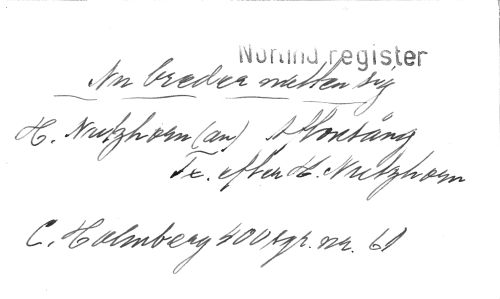 Norlind register
Nu breder natten sig
H. Nutzhorn (arr) Aftonsång
Tx. efter H. Nutzhorn
C. Holmberg 400 sgr. nr. 61